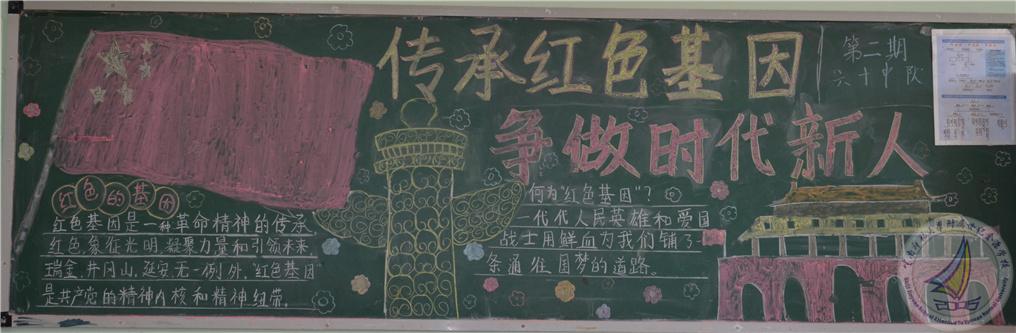 传承红色基因
第二期
六十中队
争做时代新人
红色的基因
红色基因是一种革命精神的传承
红色象征光明,凝聚力量和引领未来
瑞金、井冈山、延安无一例外,红色基因
是共产党的精神内核和精神纽带。
何为“红色基因”?
一代代人民英雄和爱国
战士用鲜血为我们铺了一
条通往国梦的道路。